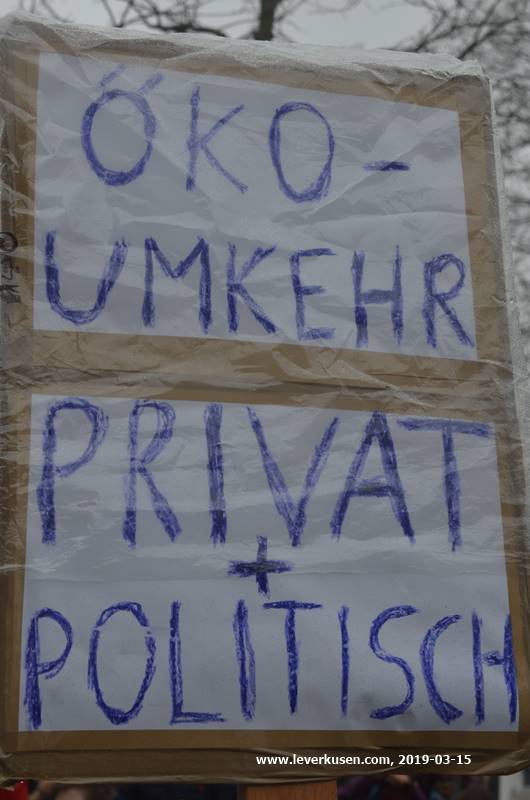 ÖKO-
UMKEHR
PRIVAT
+
POLITISCH
www.leverkusen.com, 2019-03-15